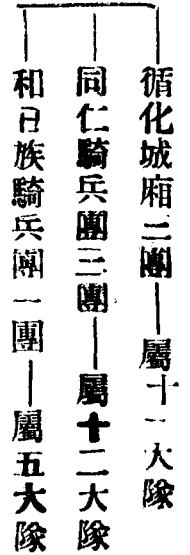 循化城廂二團——屬十一大隊
同仁騎兵團三團——屬十二大隊
和日族騎兵團一團——屬五大隊